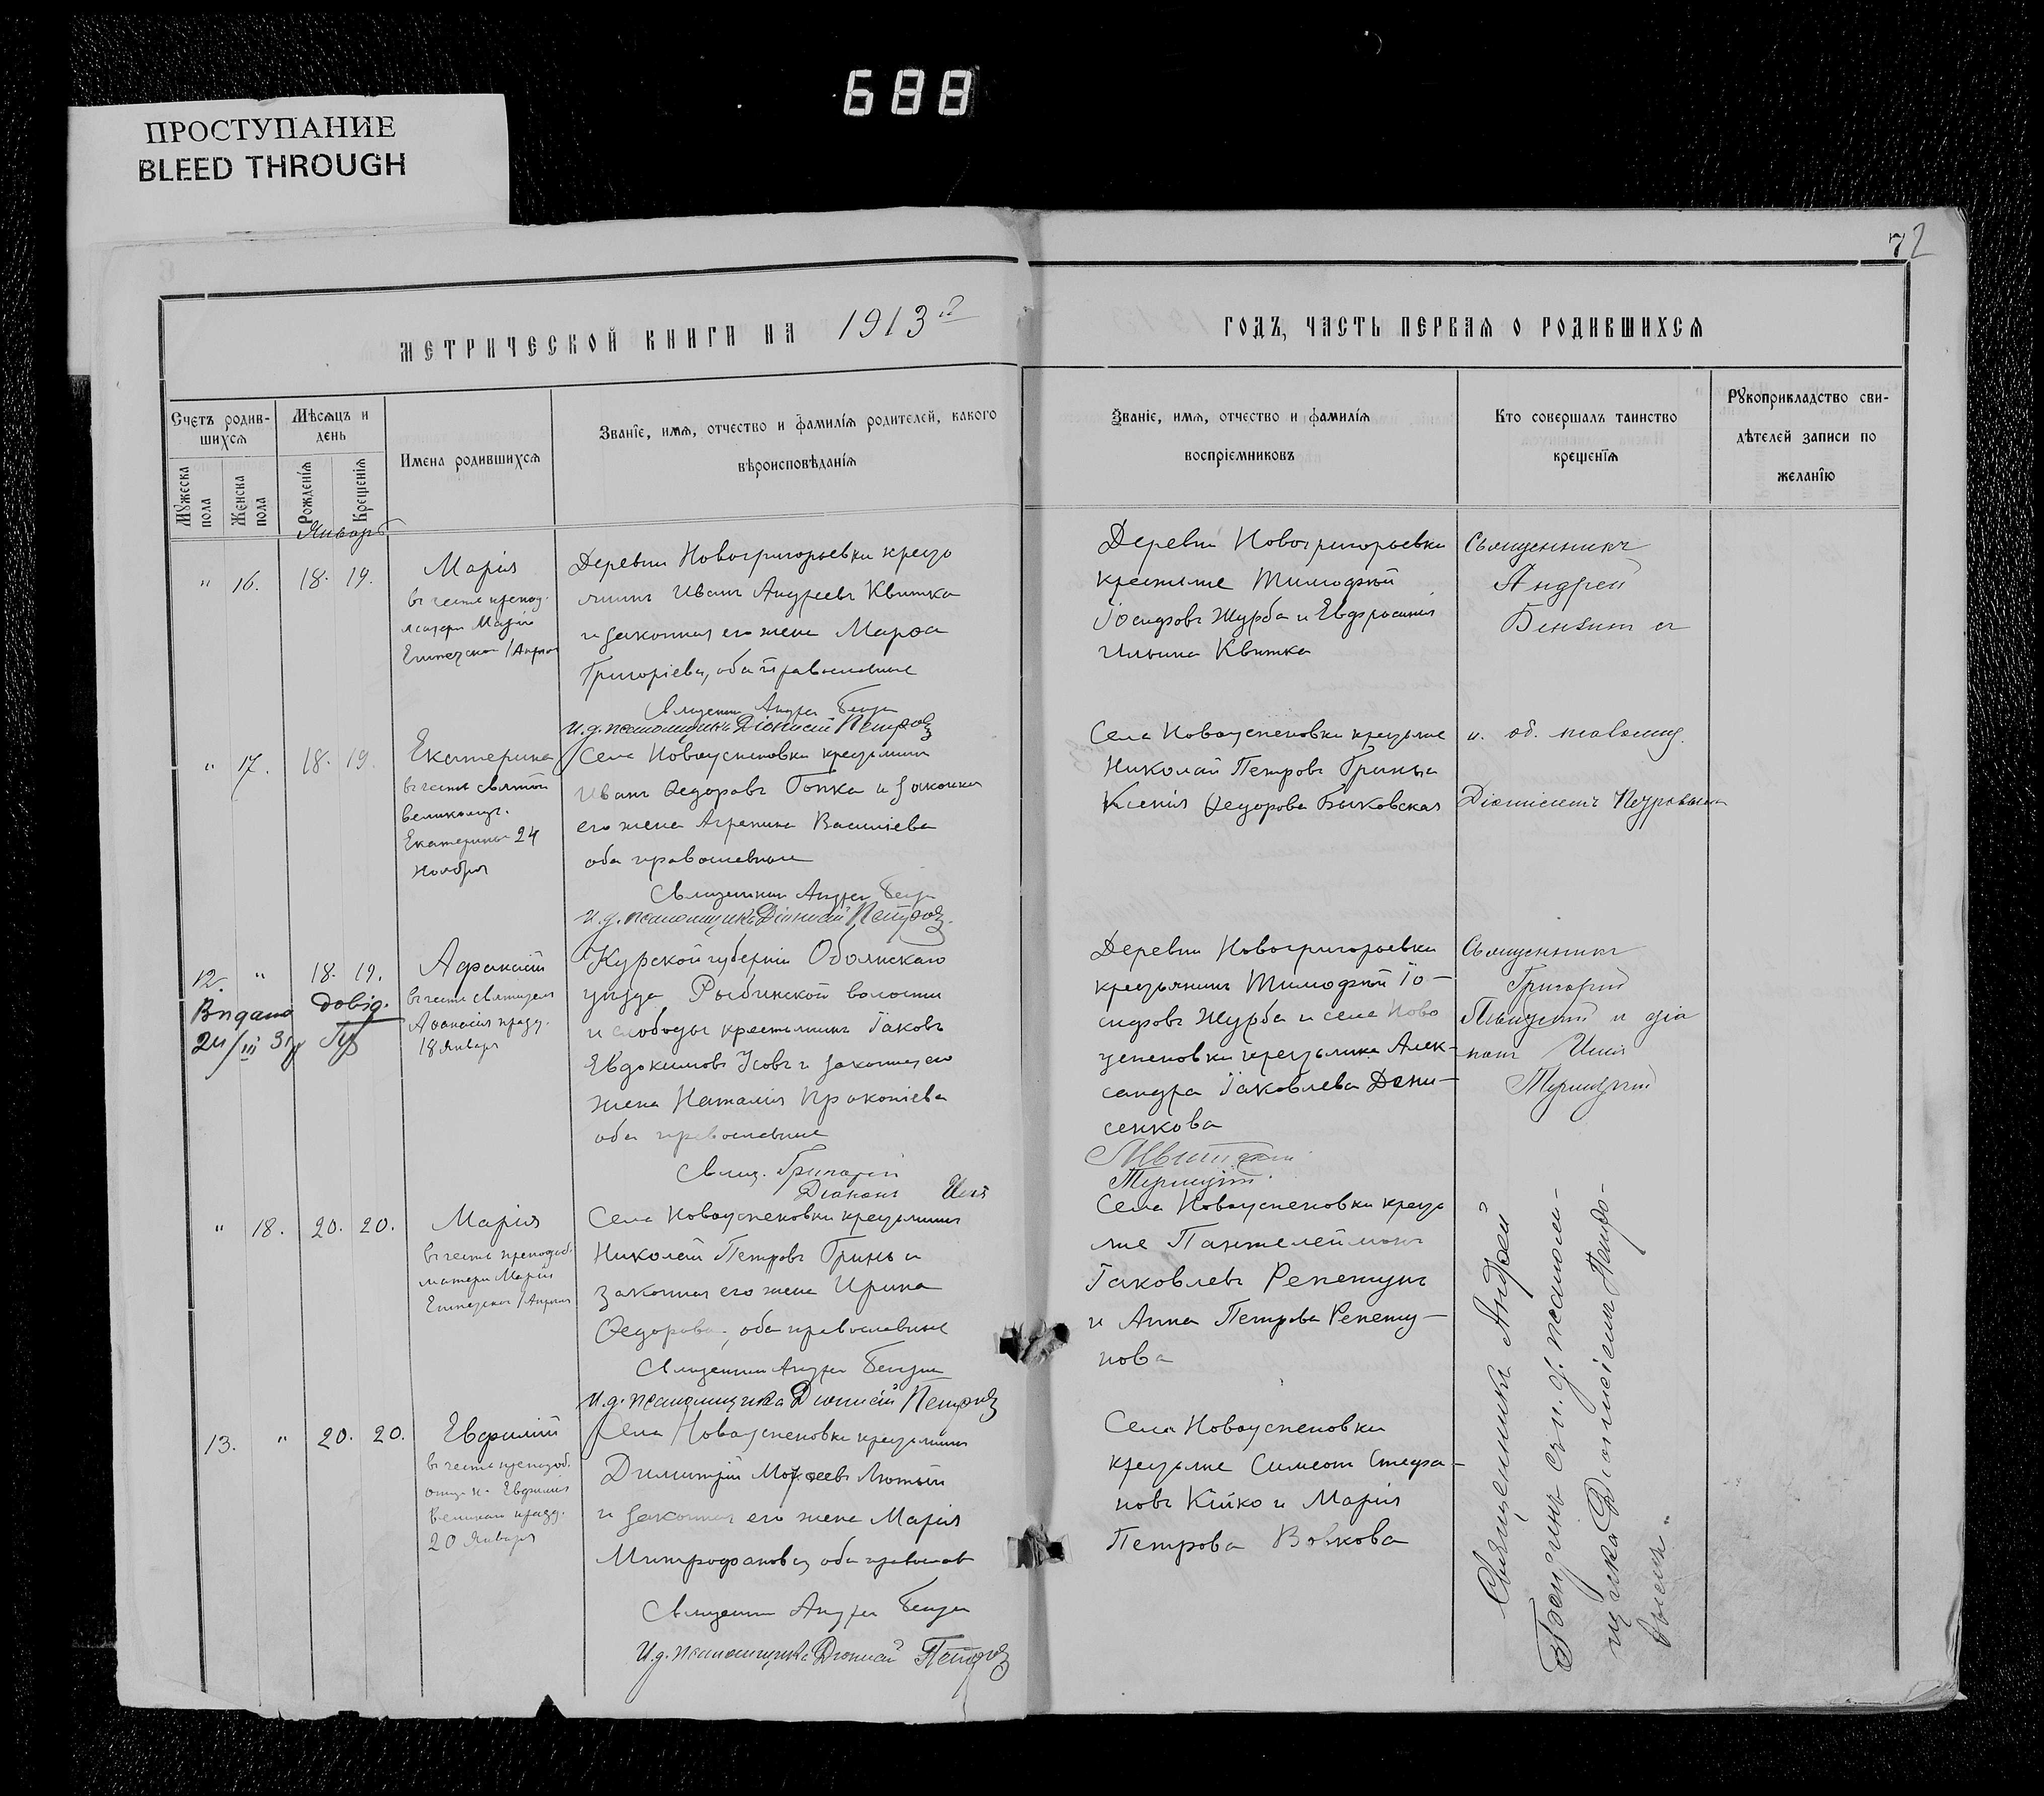 688
ПРОСТУПАНИЕ
BLEED THROUGH
72
МЕТРИЧЕСКОЙ КНИГИ НА 1913 г
ГОДЪ, ЧАСТЬ ПЕРВАЯ О РОДИВШИХСЯ
Счетъ родив-
шихся
Мужеска
пола
Женска
пола
Мѣсяцъ и
день
Рожденія
Крещенія
Имена родившихся
Званіе, имя, отчество и фамилія родителей, какого
вѣроисповѣданія
Званіе, имя, отчество и фамилія
воспріемниковъ
Кто совершалъ таинство
крещенія
Рукоприкладство сви-
дѣтелей записи по
желанію
Январь
" 16. 18. 19.
Марія
въ честь препод.
матери Маріи
Египетской 1 Апрѣл
Деревни Новогригорьевки кресть
янинъ Иванъ Андреевъ Квитка
и законная его жена Марѳа
Григоріева, оба православные
Священни Андрей
И. д. псаломщика Діонисій Петровъ
Деревни Новогригорьевки
крестьяне Тимофей
Іосифовъ Журба и Евфросинія
Ильина Квитка
Священникъ
Андрей
" 17. 18. 19.
Екатерина
въ честь святой
великомуч.
Екатерины 24
Ноября
Села Новоуспеновки крестьянинъ
Иванъ Ѳедоровъ Гопка и законная
его жена Агрепина Василіева
оба православные
Священникъ Андрей
И. д. псаломщика Діонисій Петровъ
Села Новоуспеновки крестьяне
Николай Петровъ Гринь и
Ксенія Ѳедорова Быковская
и. об. псаломщ.
Діонисіемъ Петровымъ
12. " 18. 19.
Видано довід.
24/III 31 р
Афанасій
въ честь святителя
Аѳанасія празд.
18 Января
Курской губерніи Обоянскаго
уѣзда Рыбинской волости
и слободы крестьянинъ Іаковъ
Евдокимовъ Усовъ и законная его
жена Наталія Прокопіева
оба православные
Свящ. Григорій
Діаконъ Илія
Деревни Новогригорьевки
крестьянинъ Тимофей Іо-
сифовъ Журба и села Ново
успеновки крестьянка Алек-
сандра Іаковлева Дени-
сенкова
Священникъ
Григорій
и діа
конъ Илія
" 18. 20. 20.
Марія
въ честь преподоб.
матери Маріи
Египетской 1 Апрѣля
Села Новоуспеновки крестьянинъ
Николай Петровъ Гринь и
законная его жена Ирина
Ѳедорова, оба православные
Священни Андрей
И. д. псаломщика Діонисій Петровъ
Села Новоуспеновки кресть
яне Пантелеймонъ
Іаковлевъ Репетунъ
и Анна Петрова Репету-
нова
13. " 20. 20.
Евфимій
въ честь преподоб.
отца н. Евфимія
Великаго празд.
20 Января
Села Новоуспеновки крестьянинъ
Димитрій Моѵсеевъ Лютый
и законная его жена Марія
Митрофанова, оба православ
Священни Андрей
И. д. псаломщика Діонисій Петровъ
Села Новоуспеновки
крестьяне Симеонъ Стефа-
новъ Кійко и Марія
Петрова Вовкова
Священникъ Андрей
съ и. д. псалом-
щика Діонисіемъ Петро-
вымъ"